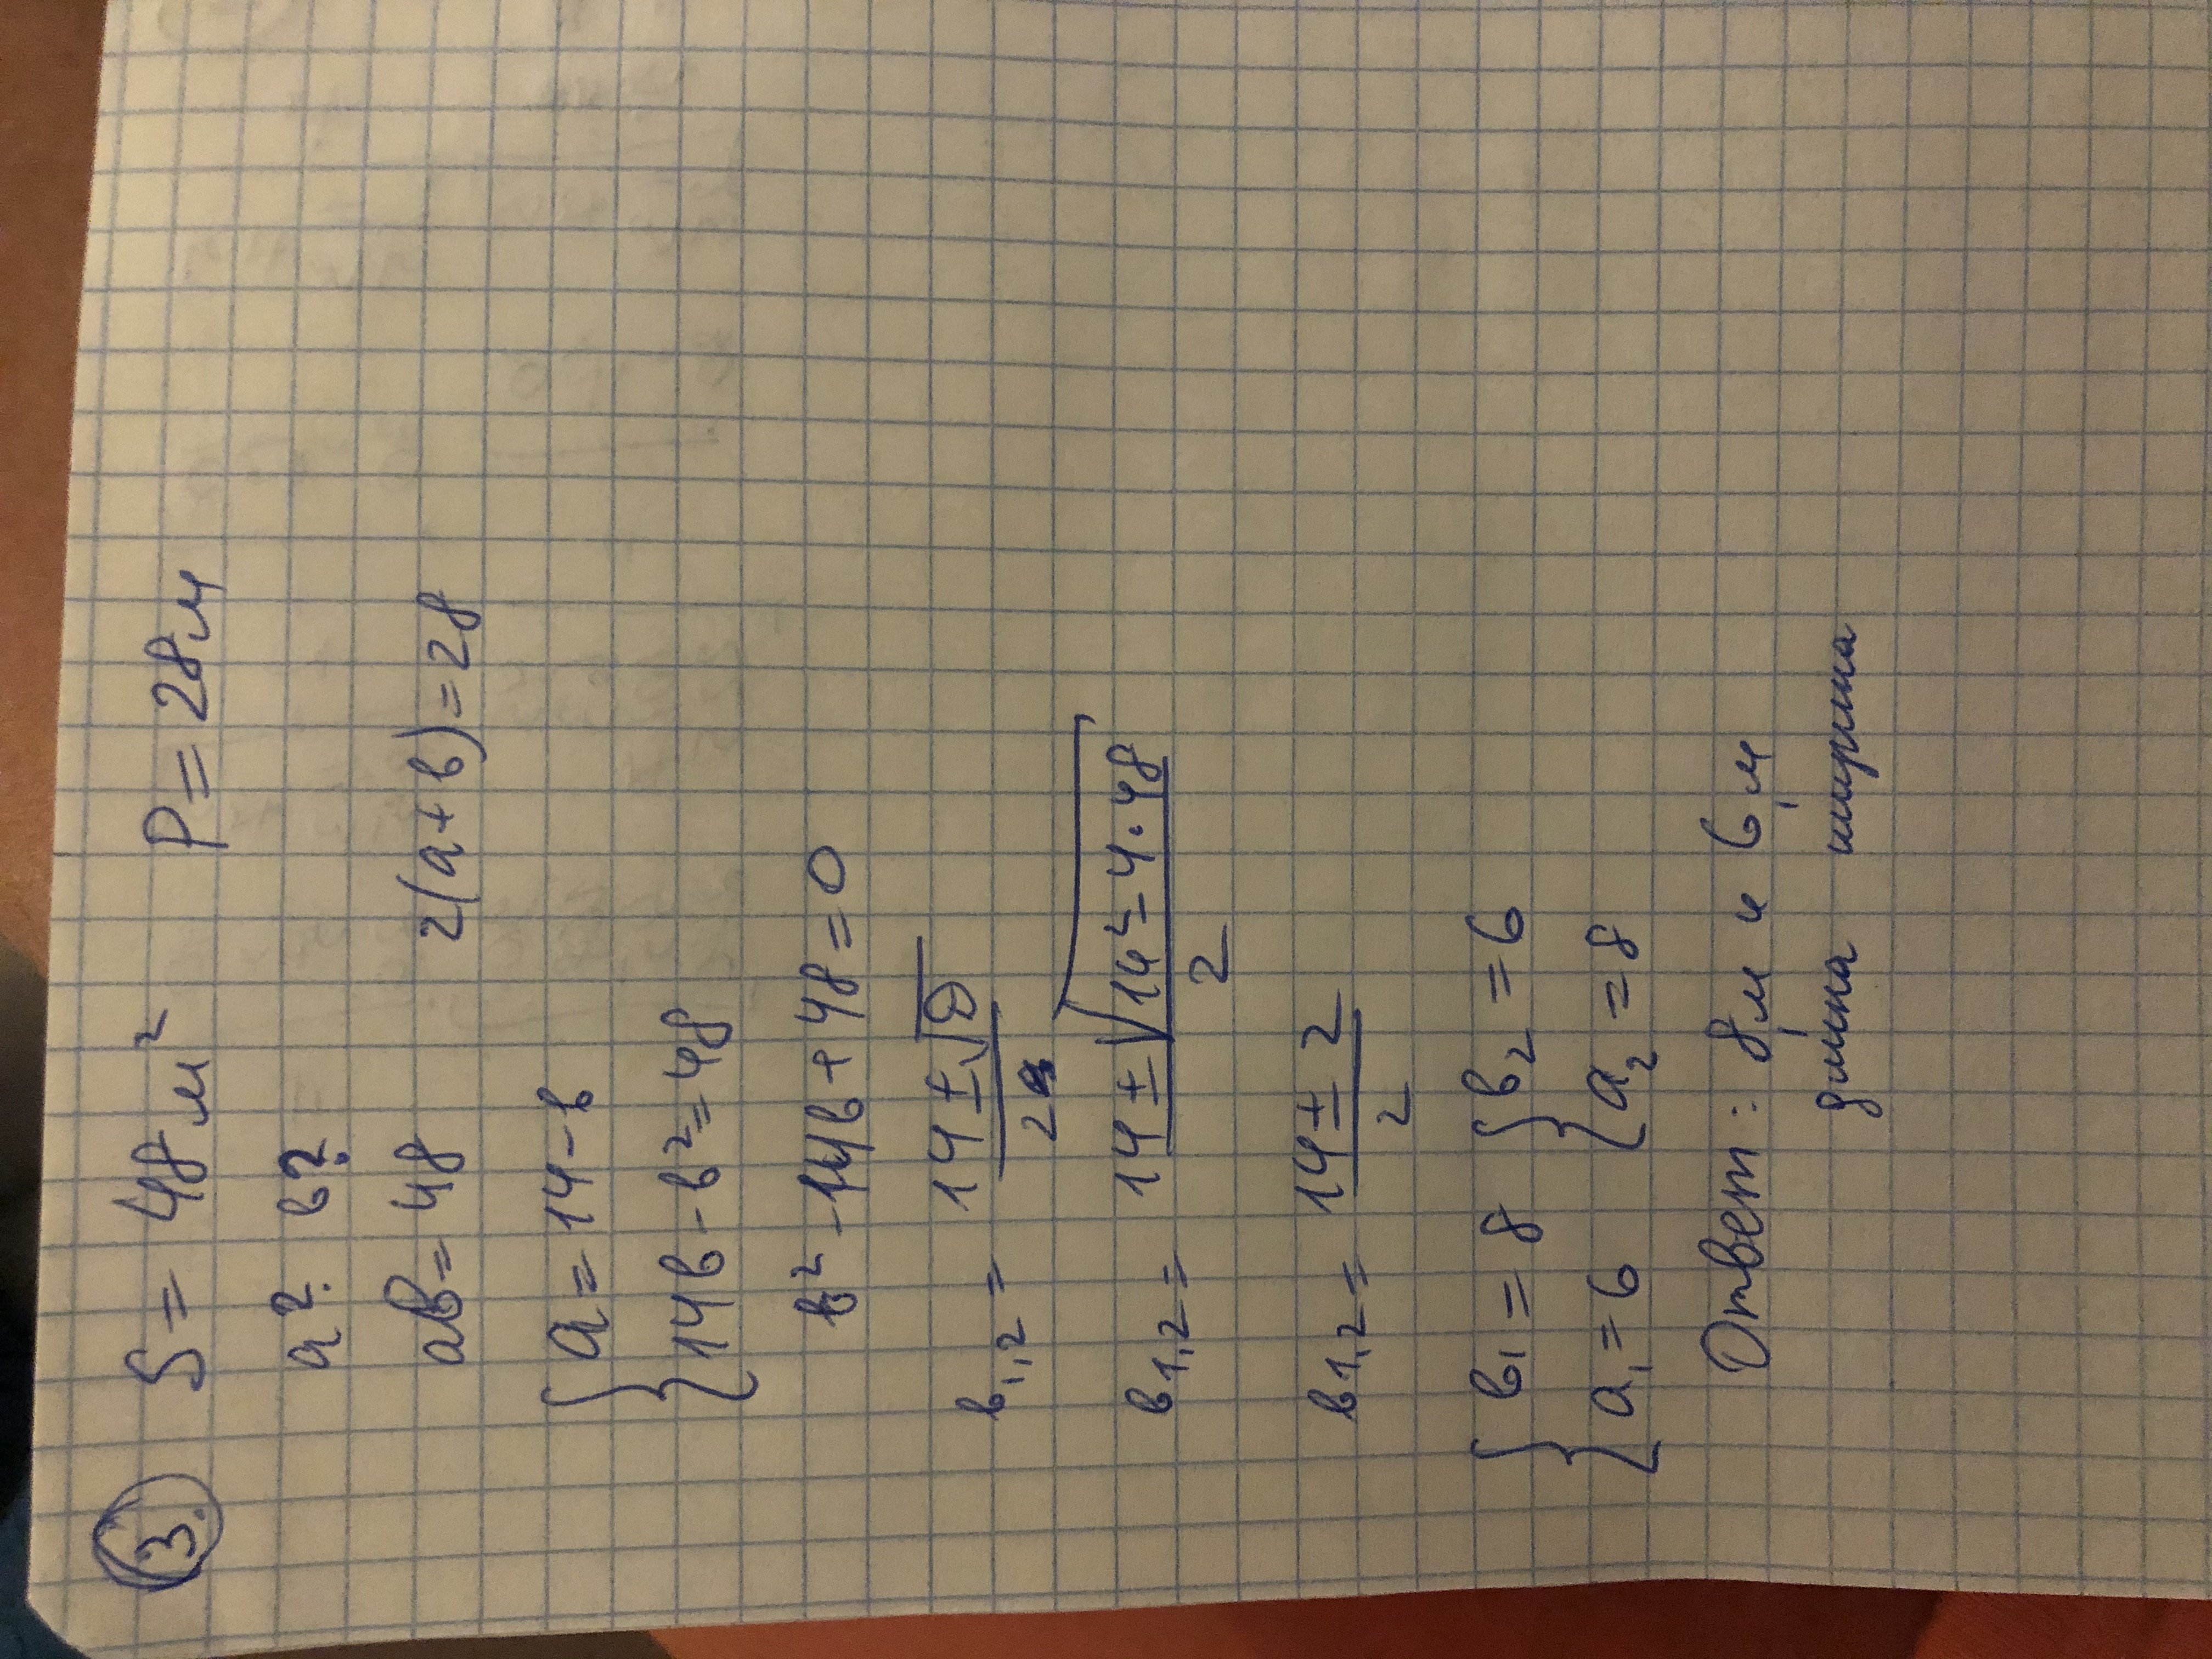 3. S = 48 м² P = 28 м
a? в?
aв = 48 2(a+в) = 28
{ a = 14 - в
{ 14в - в² = 48
в² - 14в + 48 = 0
в1,2 = (14 ± √D) / 2
в1,2 = (14 ± √(14² - 4·48)) / 2
в1,2 = (14 ± 2) / 2
{ в1 = 8 { в2 = 6
{ a1 = 6 { a2 = 8
Ответ: 8 м и 6 м
длина ширина